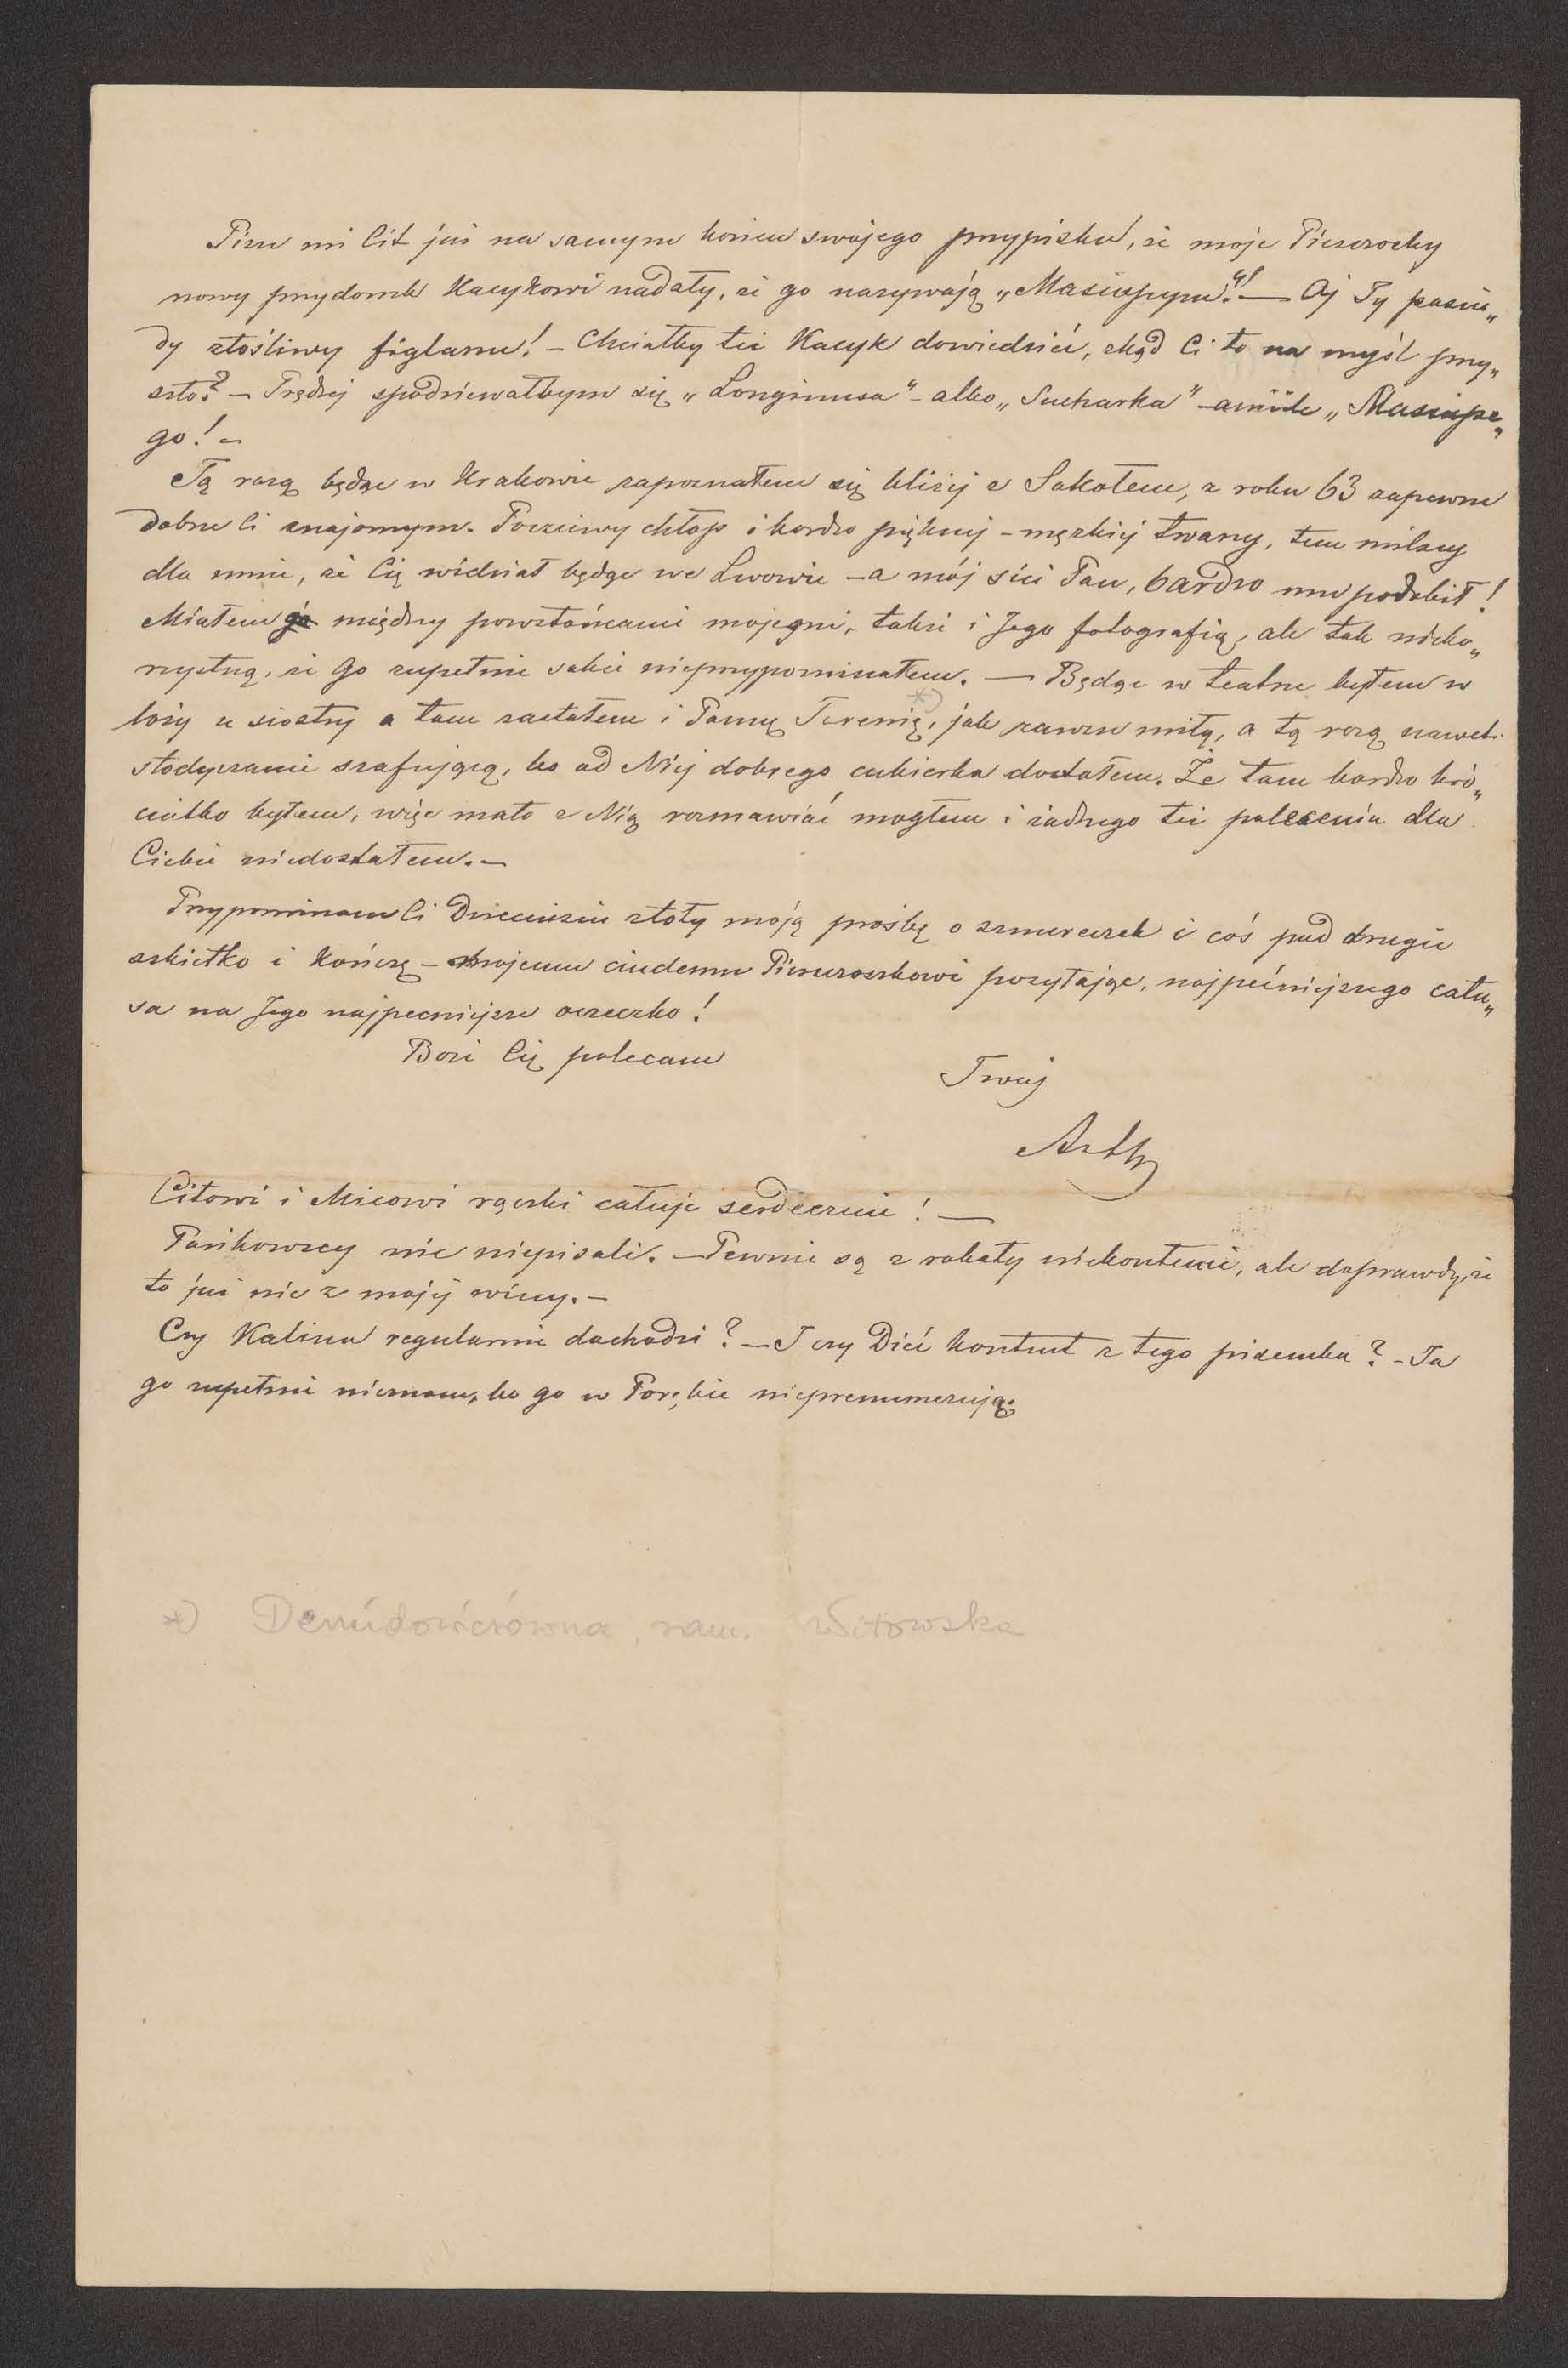 Pisze mi Cit już na samym końcu swojego przypisku, że moje Pieszczochy
nowy przydomek Kacykowi nadały, że go nazywają „Masiupym“! — Oj Ty pasku„
dy złośliwy figlarzu! – Chciałby też Kacyk dowiedzieć, skąd Ci to na myśl przy„
szło? – Prędzej spodziewałbym się „Longinusa“ – albo „Sucharka“ – ani „Masiupe„
go! –
Tą razą będąc w Krakowie zapoznałem się bliżej z Sokołem, z roku 63 zapewne
dobrze Ci znajomym. Poczciwy chłop i bardzo pięknej – męzkiej twarzy, tem milszy
dla mnie, że Cię widział będąc we Lwowie – a mój sici Pan, bardzo mu podobił!
Miałem go między powstańcami mojemi, także i Jego fotografią, ale tak nieko„
rzystną, że Go zupełnie sobie nieprzypominałem. — Będąc w teatrze byłem w
loży u siostry a tam zastałem i Pannę Terenię, *) jak zawsze miłą, a tą razą nawet
słodyczami szafującą, bo od Niej dobrego cukierka dostałem. Że tam bardzo kró„
ciutko byłem, więc mało z Nią rozmawiać mogłem i żadnego też polecenia dla
Ciebie niedostałem. –
Przypominam Ci Dzieciusiu złoty moją prośbę o sznureczek i coś pod drugie
szkiełko i kończę – mojemu ciudemu Pieszczoszkowi posyłając, najpećniejszego cału„
sa na Jego najpecniejsze oczeczko!
Bozi Cię polecam
Twój
Citowi i Micowi rączki całuję serdecznie! —
Pańkowscy nic niepisali. – Pewnie są z rabaty niekontenci, ale doprawdy, że
to już nie z mojej winy. –
Czy Kalina regularnie dochodzi? – I czy Dzieć kontent z tego pisemka? – Ja
go zupełnie nieznam, bo go w Porębie nieprenumerują.
*) Demidowiczówna, zam. Witowska